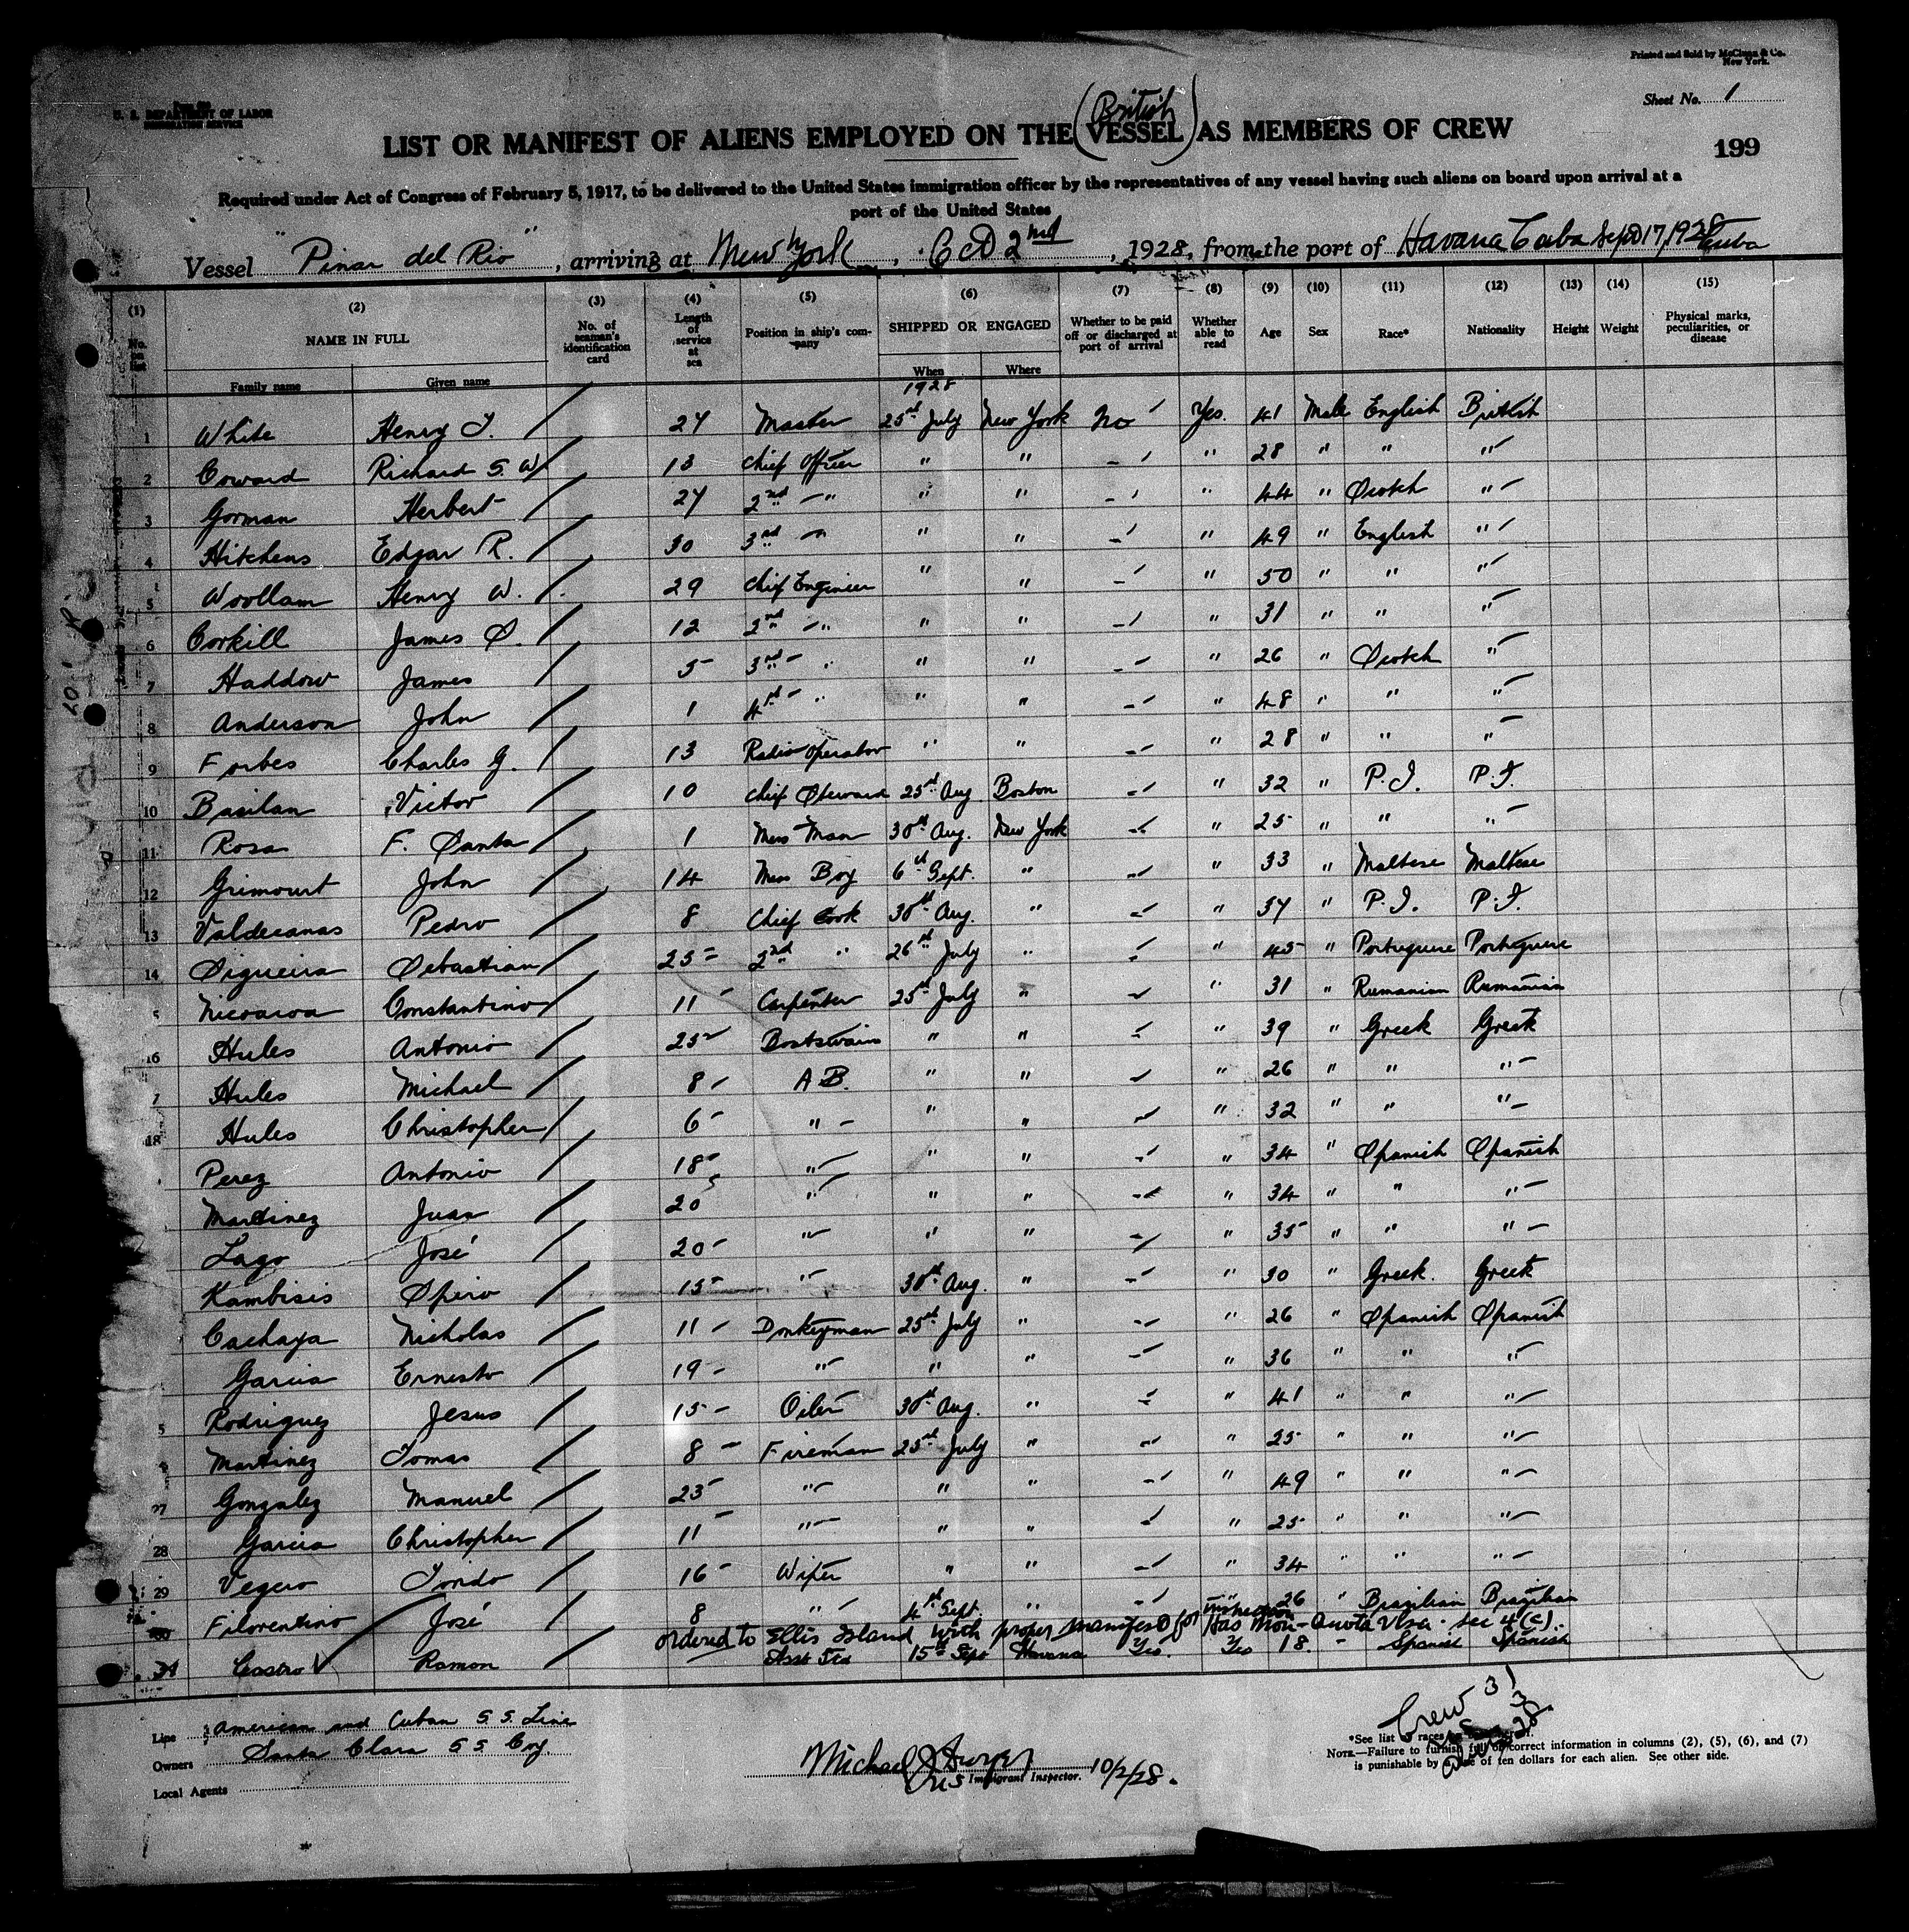 Printed and Sold by McClunn & Co.
New York.
U. S. DEPARTMENT OF LABOR
IMMIGRATION SERVICE
Sheet No. 1
(British)
LIST OR MANIFEST OF ALIENS EMPLOYED ON THE VESSEL AS MEMBERS OF CREW
199
Required under Act of Congress of February 5, 1917, to be delivered to the United States immigration officer by the representatives of any vessel having such aliens on board upon arrival at a
port of the United States
Vessel "Pinar del Rio", arriving at New York, Oct 2nd, 1928, from the port of Havana Cuba Sept 17, 1928 Cuba
(1) (2) (3) (4) (5) (6) (7) (8) (9) (10) (11) (12) (13) (14) (15)
No. on list NAME IN FULL No. of seaman's identification card Length of service at sea Position in ship's company SHIPPED OR ENGAGED Whether to be paid off or discharged at port of arrival Whether able to read Age Sex Race* Nationality Height Weight Physical marks, peculiarities, or disease
Family name Given name When Where
1928
1 White Henry T. / 27 Master 25th July New York No Yes. 41 Male English British
2 Coward Richard S. W / 13 Chief Officer " " - " 28 " " "
3 Gorman Herbert / 27 2nd " " " - " 44 " Scotch "
4 Hitchens Edgar R. / 30 3rd " " " - " 49 " English "
5 Woollam Henry W. / 29 Chief Engineer " " - " 50 " " "
6 Corkill James S. / 12 2nd " " " - " 31 " " "
7 Haddow James / 5 3rd " " " - " 26 " Scotch "
8 Anderson John / 1 4th " " " - " 48 " " "
9 Forbes Charles G. / 13 Radio Operator " " - " 28 " " "
10 Basilan Victor / 10 Chief Steward 25th Aug Boston - " 32 " P.I. P.I.
11 Rosa F. Santa / 1 Mess Man 30th Aug. New York - " 25 " " "
12 Grimourt John / 14 Mess Boy 6th Sept. " - " 33 " Maltese Maltese
13 Valdecanas Pedro / 8 Chief Cook 30th Aug. " - " 37 " P.I. P.I.
14 Sigueira Sebastian / 25 2nd " 26th July " - " 45 " Portuguese Portuguese
5 Constantino / 11 Carpenter 25th July " - " 31 " Rumanian Rumanian
16 Hules Antonio / 25 Boatswain " " - " 39 " Greek Greek
7 Hules Michael / 8 A B. " " - " 26 " " "
18 Hules Christopher / 6 " " " - " 32 " " "
Perez Antonio / 18 " " " - " 34 " Spanish Spanish
Martinez Juan / 20 " " " - " 34 " " "
Lago José / 20 " " " - " 35 " " "
Kambisis Spiro / 15 " 30th Aug. " - " 30 " Greek. Greek
Cachaya Nicholas / 11 Donkeyman 25th July " - " 26 " Spanish Spanish
Garcia Ernesto / 19 " " " - " 36 " " "
5 Rodriguez Jesus / 15 Oiler 30th Aug. " - " 41 " " "
Martinez Tomas / 8 Fireman 25th July " - " 25 " " "
27 Gonzalez Manuel / 23 " " " - " 49 " " "
28 Garcia Christopher / 11 " " " - " 25 " " "
29 Vegero Torido / 16 Wiper " " - " 34 " " "
30 Filorentino José / 8 " 4th Sept. " - " 26 " Brazilian Brazilian
ordered to Ellis Island with proper manifest for inspection Has Non-Quota Visa. sec 4(c).
31 Castro Ramon / Asst Std 15th Sept Havana Yes. Yes 18. - Spanish Spanish
Line American and Cuban S.S. Line
Owners Santa Clara S S Coy.
Local Agents
Michael J Dwyer
Immigrant Inspector. 10/2/28.
Crew 31
*See list of races
NOTE.—Failure to furnish full or correct information in columns (2), (5), (6), and (7)
is punishable by fine of ten dollars for each alien. See other side.